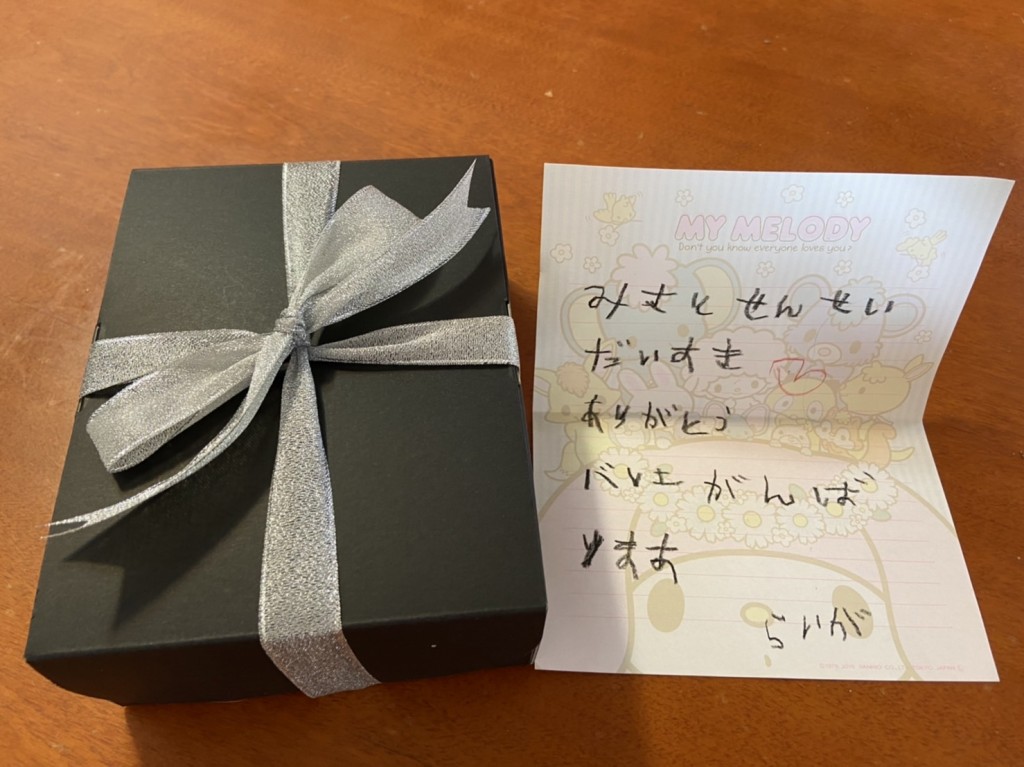 MY MELODY
Don't you know everyone loves you?
みさとせんせい
だいすき
ありがとう
バレエがんば
ります
らいが